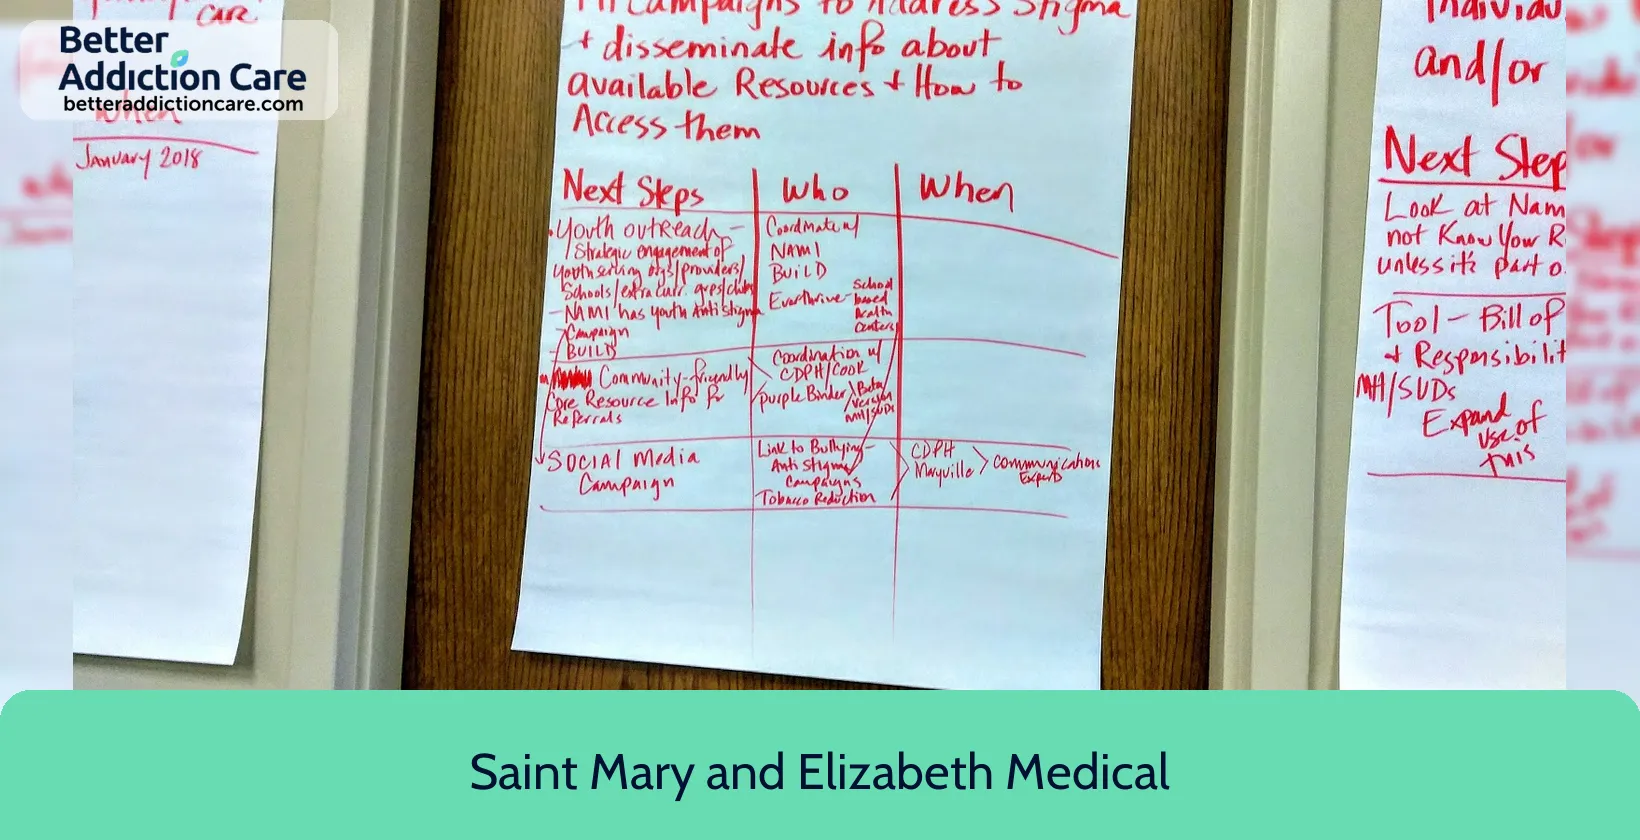 care
Better
Addiction Care
betteraddictioncare.com
When
January 2018
Campaigns to Address Stigma
+ disseminate info about
available Resources + How to
Access them
Next Steps
Who
When
Youth outreach -
Strategic engagement of
youth serving orgs/providers/
Schools/extra curr. grps/clubs
- NAMI has youth Anti Stigma
Campaign
- BUILD
Coordinate w/
NAMI
BUILD
Everthrive - School
based
Health
Centers
Community-friendly
Core Resource Info for
Referrals
Coordination w/
CDPH/COOK
Purple Binder
Beta
version
MH/SUDs
SOCIAL Media
Campaign
Link to Bullying-
Anti Stigma
Campaigns
Tobacco Reduction
CDPH
Maryville
Communications
Experts
Individu
and/or
Next Step
Look at Nam
not Know Your R
unless it's part o
Tool - Bill of
+ Responsibilit
MH/SUDs
Expand
use of
this
Saint Mary and Elizabeth Medical